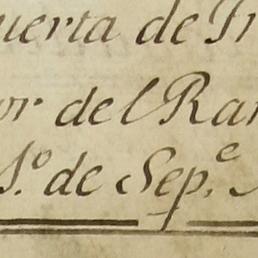 uerta de Tr
or del Ran
S.º de Sep.e